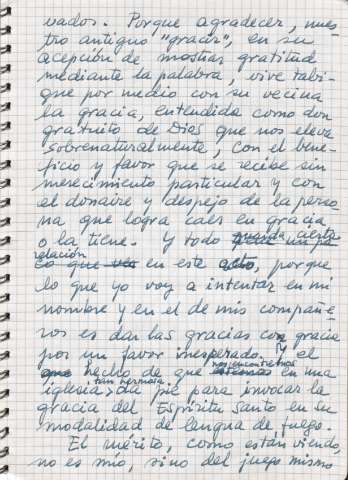 vados. Porque agradecer, nues-
tro antiguo "gracir", en su
acepción de mostrar gratitud
mediante la palabra, vive tabi-
que por medio con su vecina
la gracia, entendida como don
gratuito de Dios que nos eleva
sobrenaturalmente, con el bene-
ficio y favor que se recibe sin
merecimiento particular y con
el donaire y despejo de la perso
na que logra caer en gracia
o la tiene. Y todo guarda cierta
relación
en este acto, porque
lo que yo voy a intentar en mi
nombre y en el de mis compañe-
ros es dar las gracias con gracia
por un favor inesperado. Y el
hecho de que nos encontremos en una
iglesia tan hermosa da pie para invocar la
gracia del Espíritu Santo en su
modalidad de lengua de fuego.
El mérito, como están viendo,
no es mío, sino del juego mismo